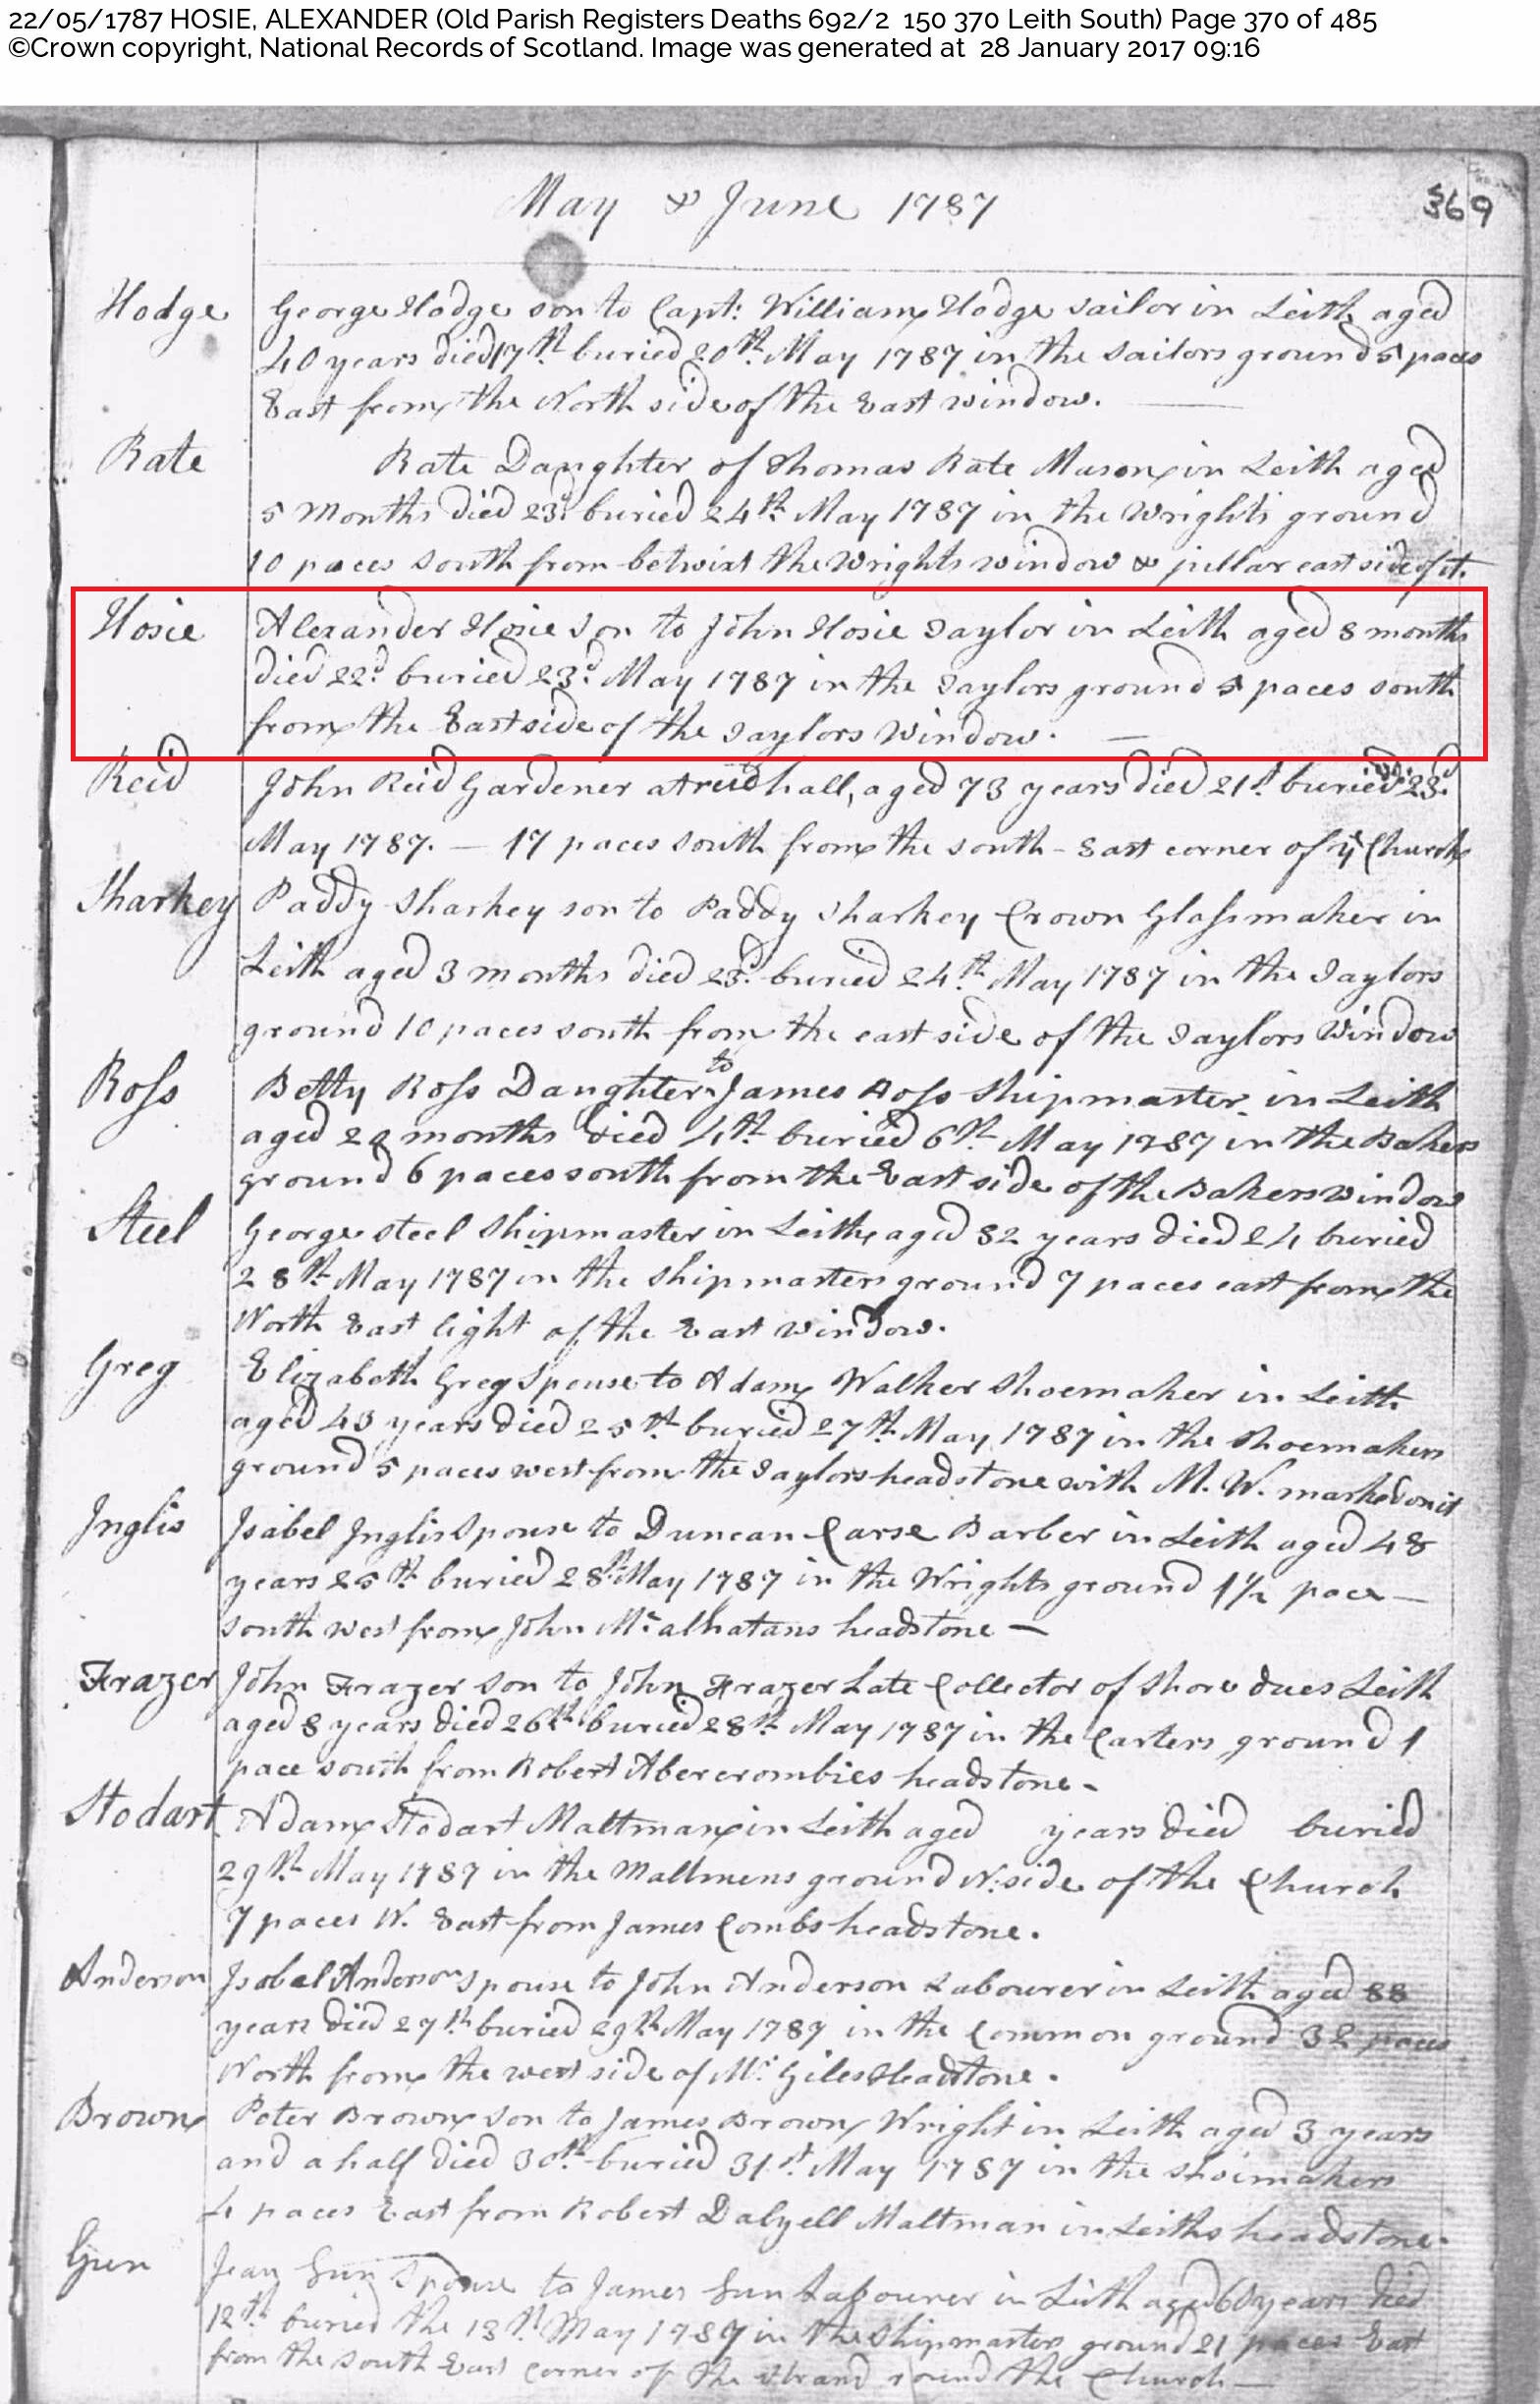 22/05/1787 HOSIE, ALEXANDER (Old Parish Registers Deaths 692/2 150 370 Leith South) Page 370 of 485
©Crown copyright, National Records of Scotland. Image was generated at 28 January 2017 09:16
May & June 1787
369
Hodge George Hodge son to Capt: William Hodge sailor in Leith aged
40 years died 17th buried 20th May 1787 in the sailors ground 5 paces
East from the North side of the East window.
Rate Rate Daughter of Thomas Rate Mason in Leith aged
5 months died 23d. buried 24th May 1787 in the Wrights ground
10 paces South from betwixt the Wrights window & pillar east side of it.
Hosie Alexander Hosie Son to John Hosie Taylor in Leith aged 8 months
died 22d. buried 23d. May 1787 in the Taylors ground 5 paces south
from the East side of the Taylors Window.
Reid John Reid Gardener at reidhall, aged 73 years died 21st. buried 23d.
May 1787. — 17 paces South from the south-East corner of ye Church
Sharkey Paddy Sharkey son to Paddy Sharkey Crown Glassmaker in
Leith aged 3 months died 23d. buried 24th May 1787 in the Taylors
ground 10 paces south from the east side of the Taylors Window
Ross Betty Ross Daughter to James Ross Shipmaster in Leith
aged months died 4th buried 6th May 1787 in the Bakers
ground 6 paces south from the East side of the Bakers window
Steel George Steel Shipmaster in Leith aged 32 years died 24 buried
28th May 1787 in the shipmasters ground 7 paces east from the
North East light of the East window.
Greg Elizabeth Greg Spouse to Adam Walker Shoemaker in Leith
aged 43 years died 25th buried 27th May 1787 in the Shoemakers
ground 5 paces west from the Taylors headstone with M. W. marked on it
Inglis Isabel Inglis Spouse to Duncan Carse Barber in Leith aged 48
years 25th buried 28th May 1787 in the Wrights ground 1½ pace —
South west from John headstone —
Frazer John Frazer son to John Frazer Late Collector of Shore dues Leith
aged 8 years died 26th buried 28th May 1787 in the Carters ground 1
pace south from Robert Abercrombies headstone -
Stodart Adam Stodart Maltman in Leith aged years died buried
29th May 1787 in the Maltmens ground N: side of the Church
7 paces N. East from James Combs headstone.
Anderson Isobel Anderson Spouse to John Anderson Labourer in Leith aged 88
years died 27th buried 29th May 1787 in the Common ground 32 paces
North from the west side of Mr Giles Headstone.
Brown Peter Brown son to James Brown Wright in Leith aged 3 years
and a half died 30th buried 31st. May 1787 in the shoemakers
4 paces East from Robert Dalyell Maltman in Leiths headstone.
Gun Jean Gun Spouse to James Gun Labourer in Leith aged 60 years died
12th buried the 13th May 1787 in the Shipmasters ground 21 paces East
from the South East corner of the round the Church —